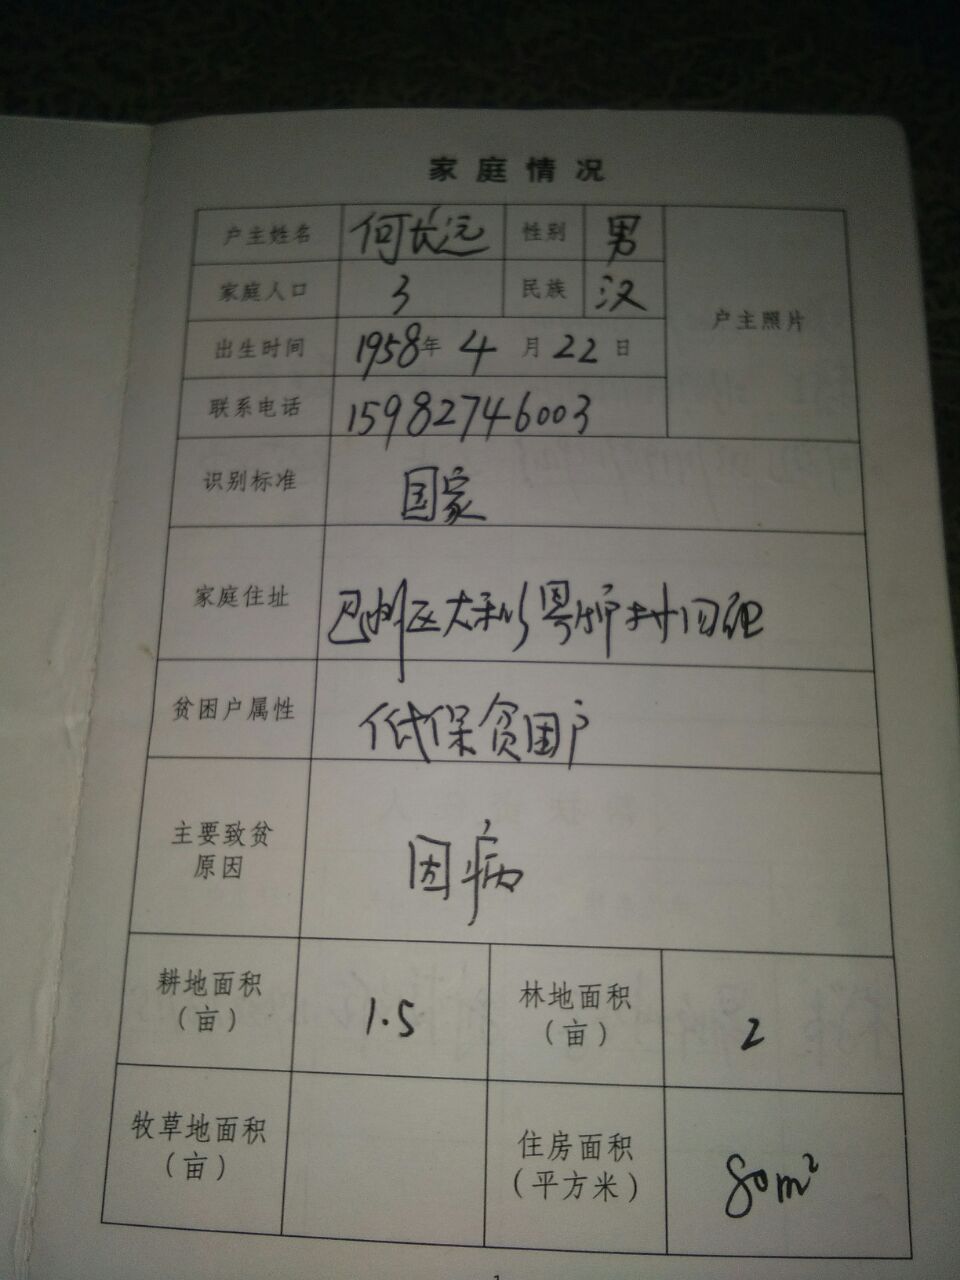 家庭情况
户主姓名 何长远 性别 男
家庭人口 3 民族 汉
户主照片
出生时间 1958年 4 月 22 日
联系电话 15982746003
识别标准 国家
家庭住址 巴州区大和 村四组
贫困户属性 低保贫困户
主要致贫
原因
因病
耕地面积
（亩）
1.5
林地面积
（亩）
2
牧草地面积
（亩）
住房面积
（平方米）
80m²
1